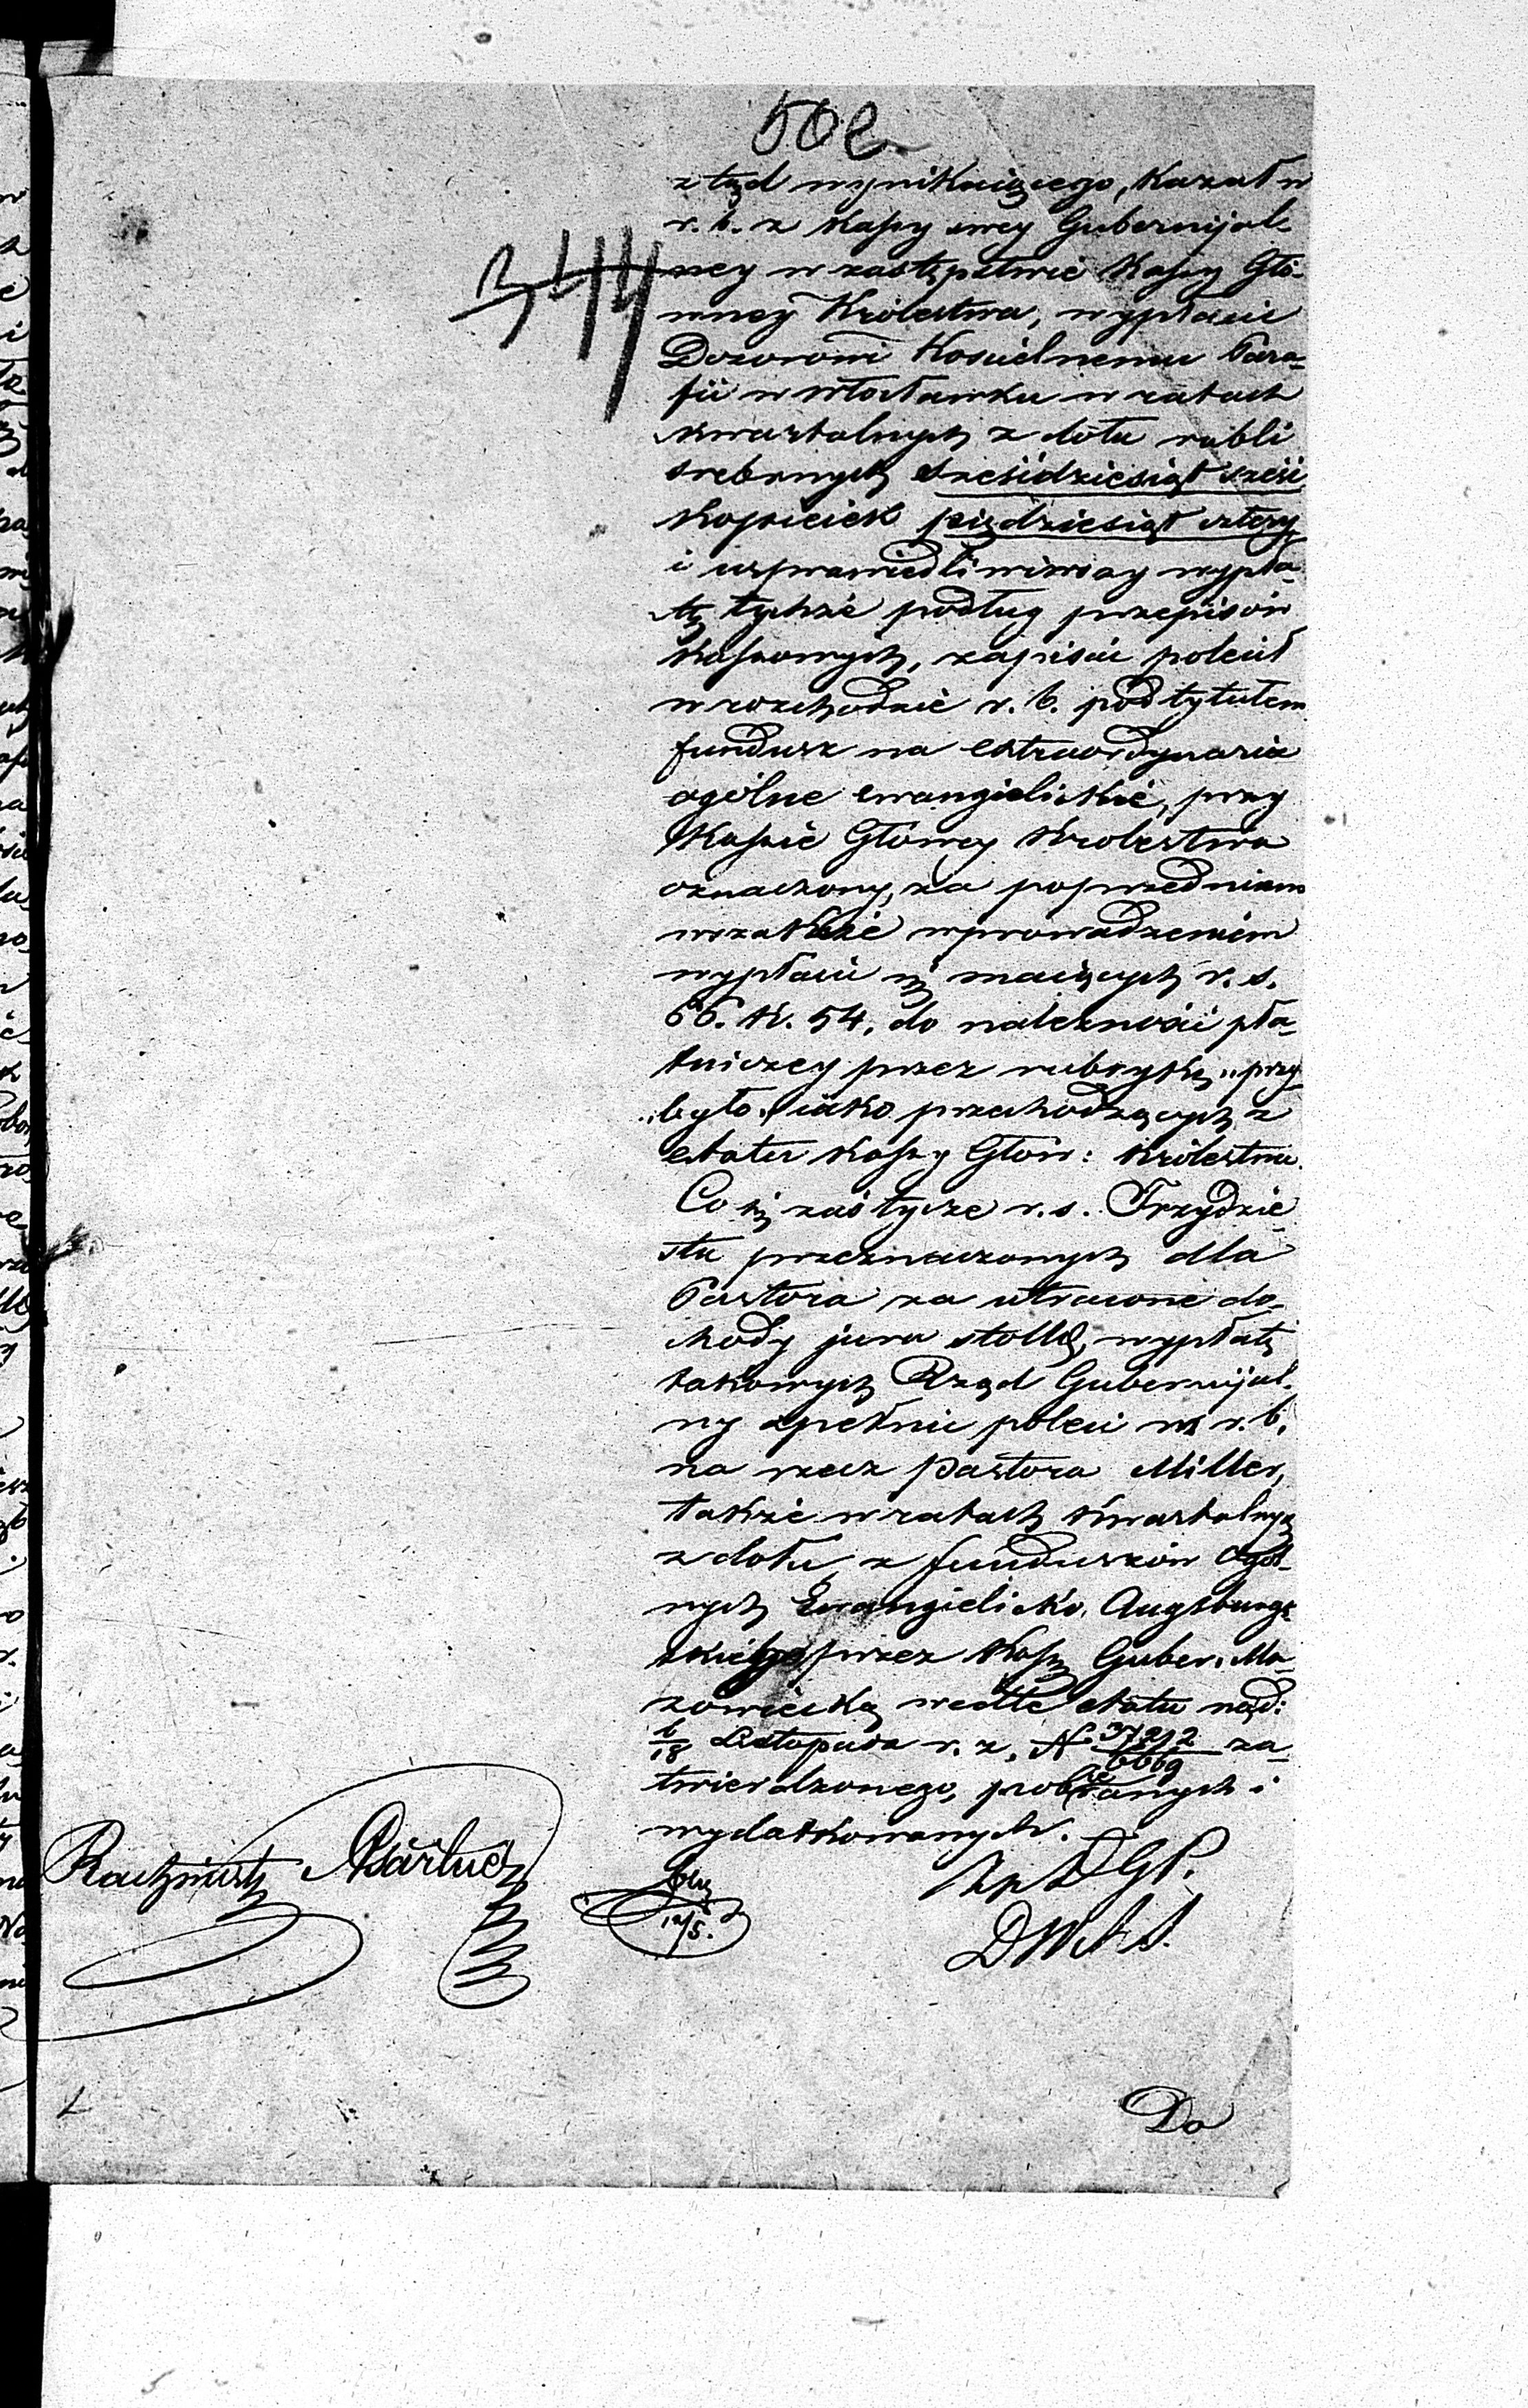 ztąd wynikaiącego, kazał w
r. b. z kassy swey Gubernijal-
ney w zastępstwie Kassy Głó-
wney Królestwa, wypłacić
Dozorowi Kościelnemu Para-
fii w Włocławku w ratach
kwartalnych z dołu rubli
srebrnych sześćdziesiąt sześć
kopieiek pięćdziesiąt cztery
i usprawiedliwiwszy wypła-
tę tychże podług przepisów
kassowych, zapisać polecił
w rozchodzie r. b. pod tytułem
fundusz na extraordynaria
ogólne ewangielickie, przy
Kassie Głowey Krolestwa
oznaczony, za poprzedniem
wszakże wprowadzeniem
wypłacić się maiących r. s.
66. k. 54, do należności pła-
tniczey przez rubrykę „przy-
„było„ iako przechodzących z
etatu kassy Głów: Królestwa.
Co się zaś tycze r. s. Trzydzie-
stu przeznaczonych dla
Pastora za utracone do-
chody jura stollæ, wypłatę
takowych Rząd Gubernijal-
ny zpełnić poleci w r. b.
na rzecz Pastora Miller,
także w ratach kwartalnych
z dołu, z funduszów ogól-
nych Ewangielicko Augsburgs
kich przez Kassę Guber. Ma-
zowiecką wedle etatu nąd:
6/18 Listopada r. z. N 37212/6669 za-
twierdzonego, pobranych i
wydatkowanych.
DGP.
12/5.
Do